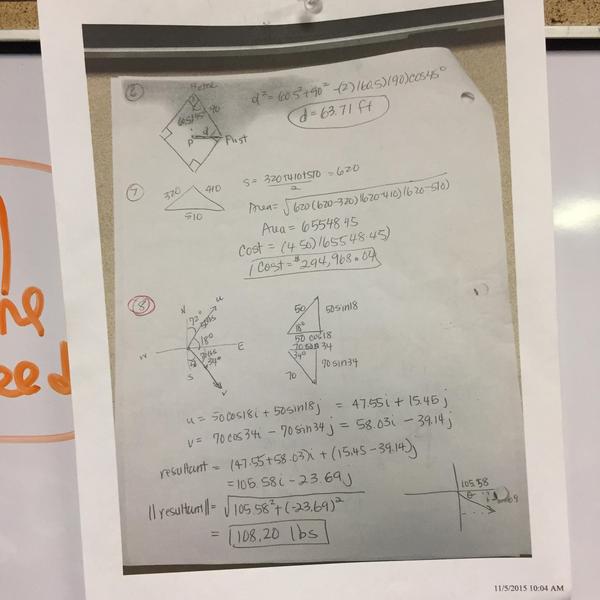 6
Home
90
60.5
45°
d
P
First
d² = 60.5² + 90² - (2)(60.5)(90)cos45°
d = 63.71 ft
7
320 410
510
S = 320+410+510 = 620
2
Area = √620(620-320)(620-410)(620-510)
Area = 65548.45
Cost = (4.50)(65548.45)
Cost = $294,968.04
8
N
u
72°
50lbs
18°
W
E
70lbs
34°
S
v
50
50sin18
18°
50 cos18
70 34
34°
70
70sin34
u = 50cos18i + 50sin18j = 47.55i + 15.45j
v = 70cos34i - 70sin34j = 58.03i - 39.14j
resultant = (47.55+58.03)i + (15.45-39.14)j
= 105.58i - 23.69j
||resultant|| = √105.58² + (-23.69)²
= 108.20 lbs
105.58
θ
11/5/2015 10:04 AM
eed